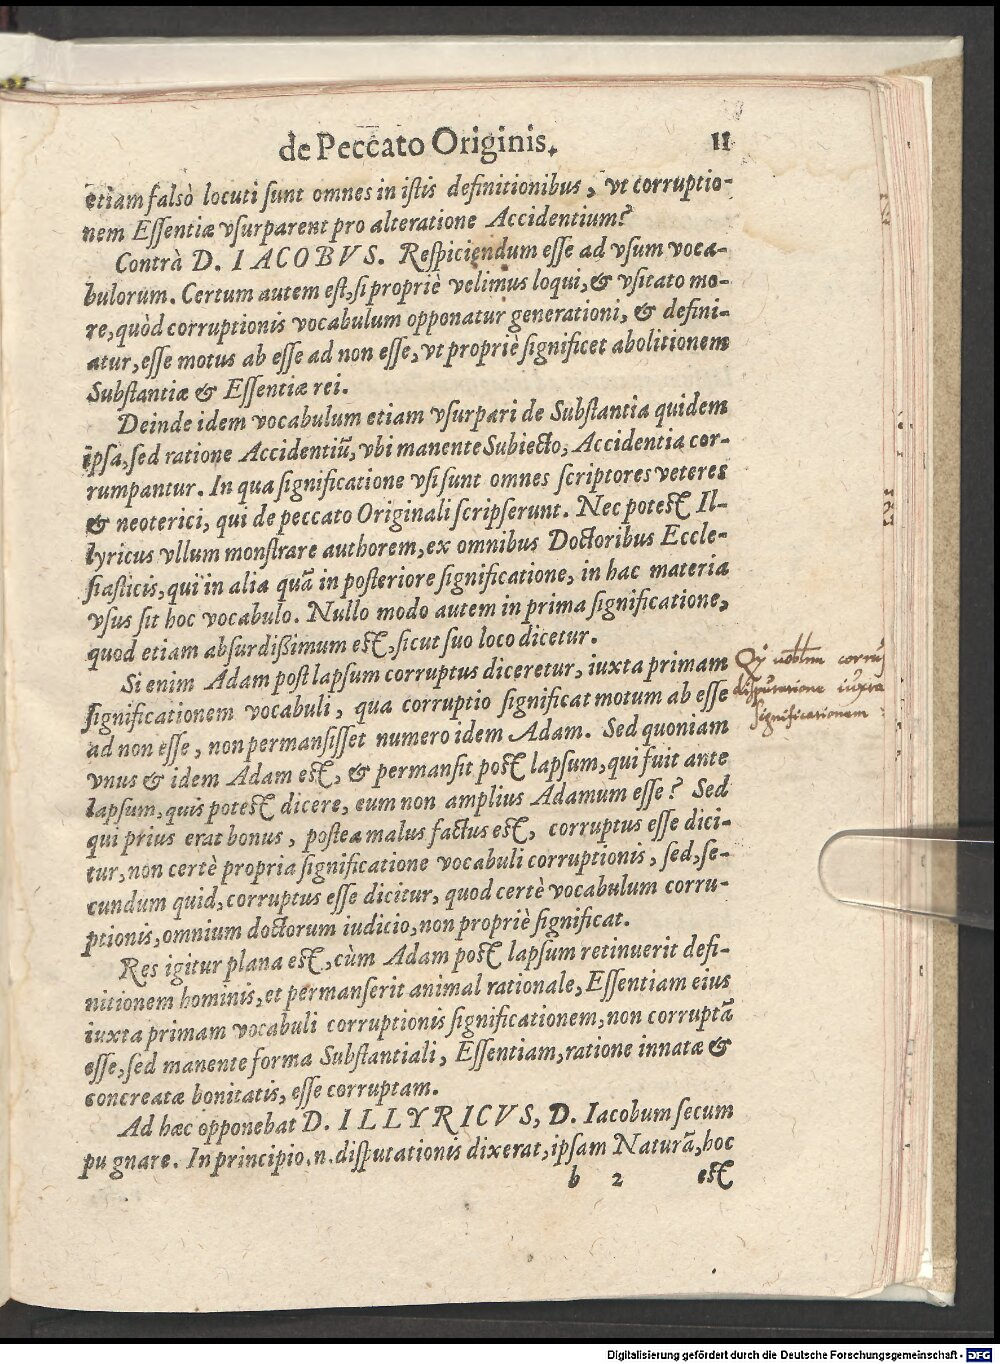 de Peccato Originis. 11
etiam falsò locuti ſunt omnes in iſtis definitionibus, vt corruptio-
nem Eſſentiæ vſurparent pro alteratione Accidentium?
Contrà D. IACOBVS. Reſpiciendum eſſe ad vſum voca-
bulorum. Certum autem eſt, ſi propriè velimus loqui, & vſitato mo-
re, quòd corruptionis vocabulum opponatur generationi, & defini-
atur, eſſe motus ab eſſe ad non eſſe, vt propriè ſignificet abolitionem
Subſtantiæ & Eſſentiæ rei.
Deinde idem vocabulum etiam vſurpari de Subſtantia quidem
ipſa, ſed ratione Accidentiũ, vbi manente Subiecto, Accidentia cor-
rumpantur. In qua ſignificatione vſi ſunt omnes ſcriptores veteres
& neoterici, qui de peccato Originali ſcripſerunt. Nec poteſt Il-
lyricus vllum monſtrare authorem, ex omnibus Doctoribus Eccle-
ſiaſticis, qui in alia quã in poſteriore ſignificatione, in hac materia
vſus ſit hoc vocabulo. Nullo modo autem in prima ſignificatione,
quod etiam abſurdißimum eſt, ſicut ſuo loco dicetur.
Si enim Adam post lapſum corruptus diceretur, iuxta primam
ſignificationem vocabuli, qua corruptio ſignificat motum ab eſſe
ad non eſſe, non permanſiſſet numero idem Adam. Sed quoniam
vnus & idem Adam eſt, & permanſit poſt lapſum, qui fuit ante
lapſum, quis poteſt dicere, eum non amplius Adamum eſſe? Sed
qui prius erat bonus, poſtea malus factus eſt, corruptus eſſe dici-
tur, non certè propria ſignificatione vocabuli corruptionis, ſed, ſe-
cundum quid, corruptus eſſe dicitur, quod certè vocabulum corru-
ptionis, omnium doctorum iudicio, non propriè ſignificat.
Res igitur plana eſt, cùm Adam poſt lapſum retinuerit defi-
nitionem hominis, et permanſerit animal rationale, Eſſentiam eius
iuxta primam vocabuli corruptionis ſignificationem, non corruptã
eſſe, ſed manente forma Subſtantiali, Eſſentiam, ratione innatæ &
concreatæ bonitatis, eſſe corruptam.
Ad hæc opponebat D. ILLYRICVS, D. Iacobum ſecum
pugnare. In principio .n. diſputationis dixerat, ipſam Naturã, hoc
b 2 eſt
disputatione iuxta
significationem
Digitalisierung gefördert durch die Deutsche Forschungsgemeinschaft - DFG